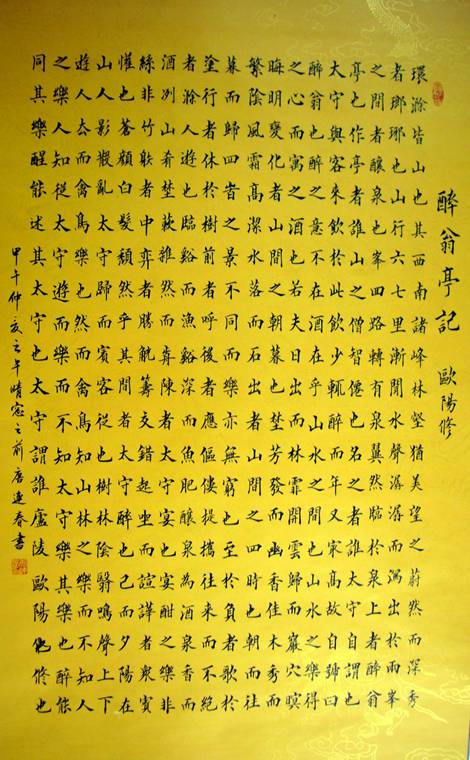 醉翁亭記 歐陽修
環滁皆山也其西南諸峰林壑猶美望之蔚然而深秀
者瑯瑘也山行六七里漸聞水聲潺潺而瀉出於兩峯
之間者釀泉也峯回路轉有泉翼然臨於泉上者醉翁
亭也作亭者誰山之僧智僊也名之者誰太守自謂也
太守與客來飲於此飲少輒醉而年又寂高故自號曰
醉翁也醉翁之意不在酒在乎山水之間也山水之樂得
之心而寓之酒也若夫日出而林霏開雲歸而巖穴暝
晦明變化者山間之朝暮也埜芳發而幽香佳木秀而
繁陰風霜高潔水落而石出者山間之四時也朝而往
暮而歸四旹之景不同而樂亦無窮也至於負者歌於
塗行者休於樹前者呼後者應傴僂提攜往來而不絕
者滁人遊也臨谿而漁谿深而魚肥釀泉為酒泉香而
酒冽山肴埜蔌雜然而前陳者太守宴也宴酣之樂非
絲非竹躲者中弈者勝觥籌交錯起坐而諠譁者衆賓
懽也蒼顏白髮頹然乎其間者太守醉也已而夕陽在
山人影散亂太守歸而賓客從也樹林陰翳鳴聲上下
遊人去而禽鳥樂也然而禽鳥知山林之樂而不知人
之樂人知從太守遊而樂而不知太守樂其樂也醉能
同其樂醒能述其太守也太守謂誰廬陵歐陽修也
甲午仲亥之午晴窗之前唐連春書